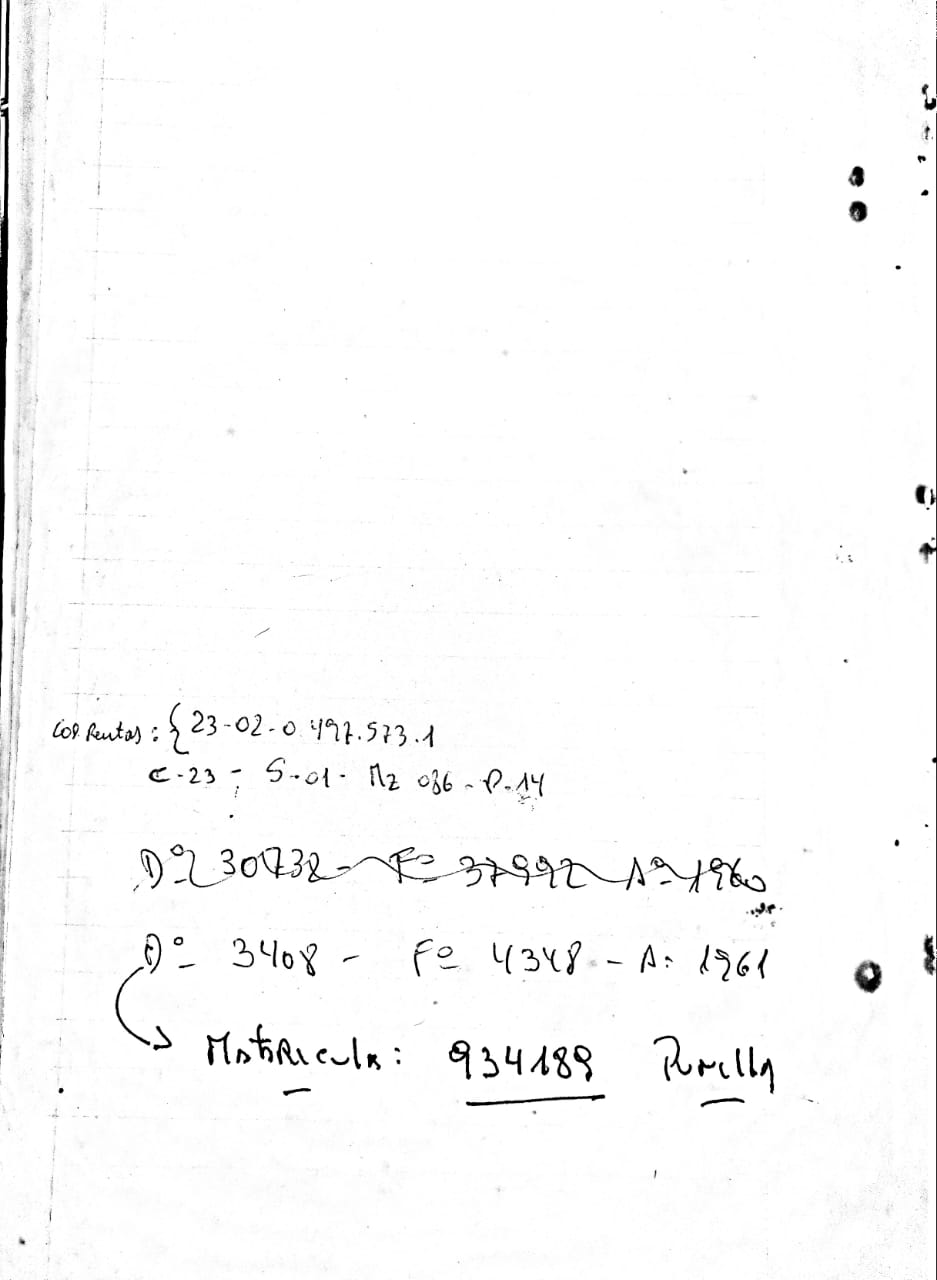 Cop Rentas : { 23-02-0.497.573.1
C-23 - S-01- Mz 036 - P-14
Dº 30732 - Fº 37992 Aº 1960
Dº 3408 - Fº 4348 - A: 1961
MatRicula: 934189 Punilla